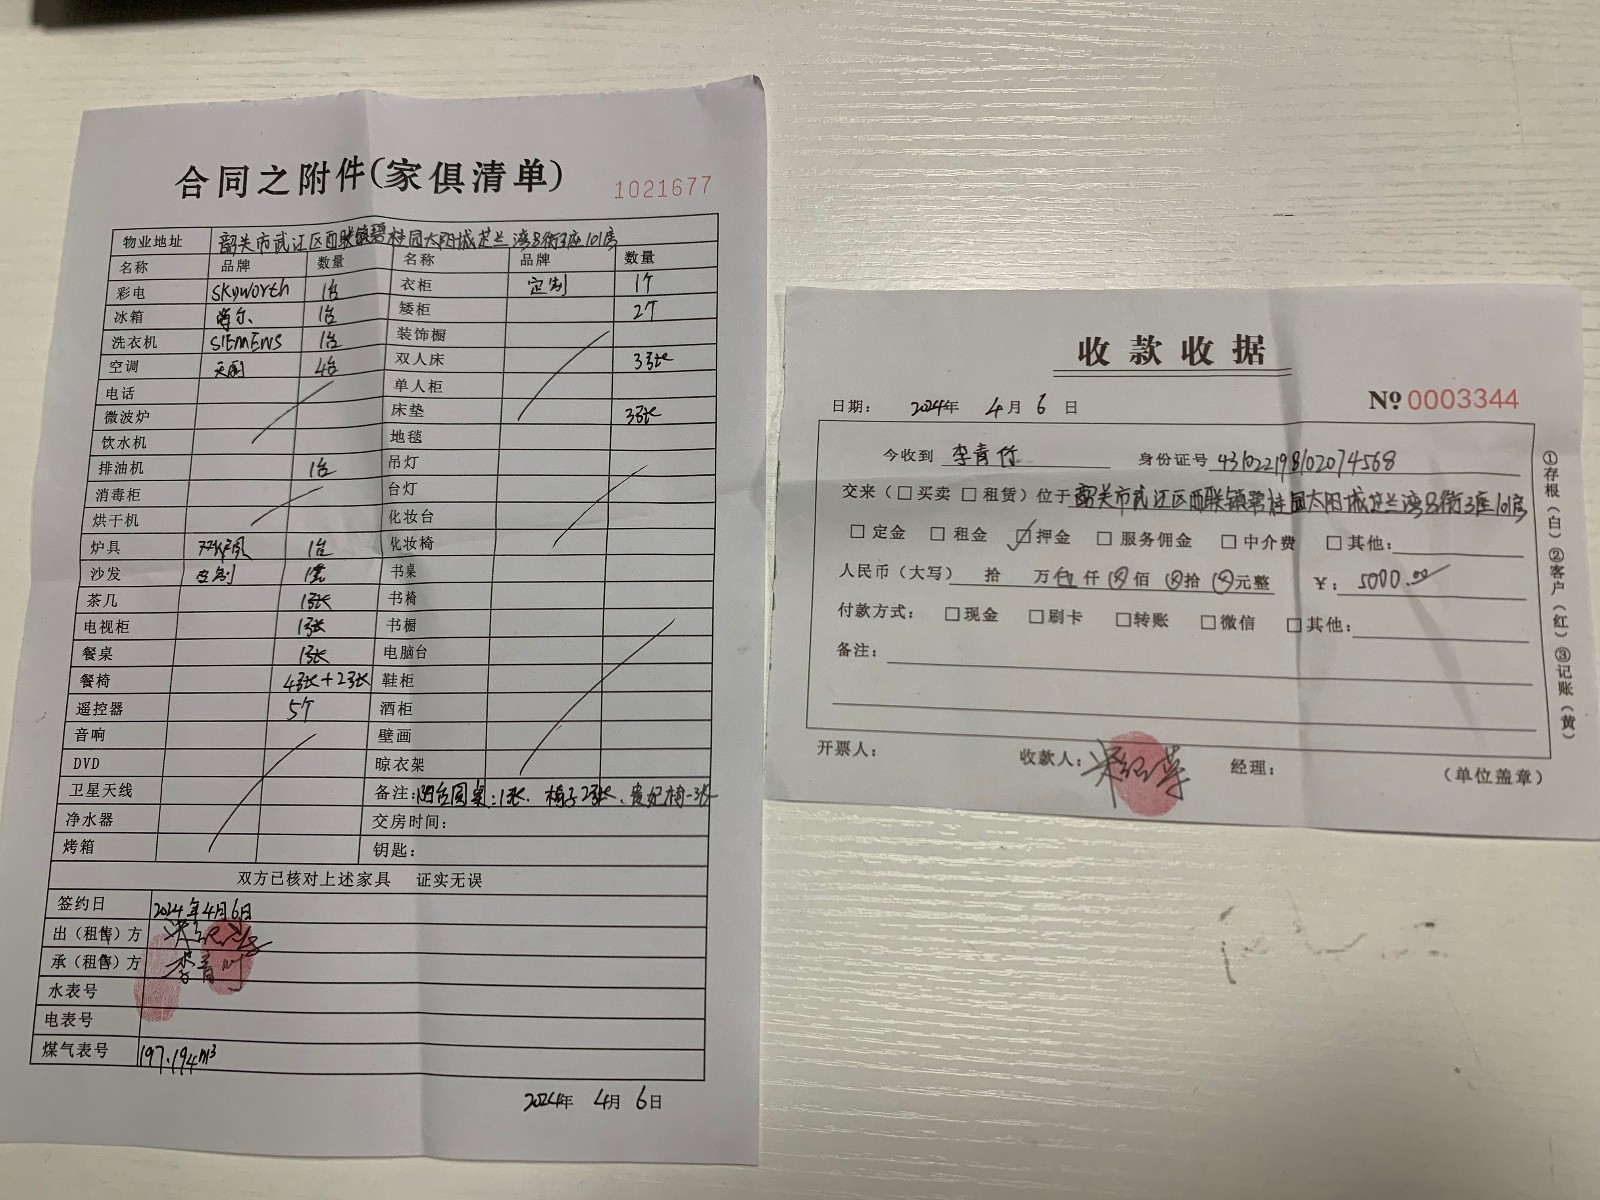 合同之附件(家俱清单) 1021677
物业地址 韶关市武江区西联镇碧桂园太阳城芷兰湾8街3座101房
名称 品牌 数量 名称 品牌 数量
彩电 Skyworth 1台 衣柜 定制 1个
冰箱 海尔 1台 矮柜 2个
洗衣机 SIEMENS 1台 装饰橱
空调 4台 双人床 3张
电话 单人柜
微波炉 床垫 3张
饮水机 地毯
排油机 1台 吊灯
消毒柜 台灯
烘干机 化妆台
炉具 1台 化妆椅
沙发 定制 1套 书桌
茶几 1张 书椅
电视柜 1张 书橱
餐桌 1张 电脑台
餐椅 4张+2张 鞋柜
遥控器 5个 酒柜
音响 壁画
DVD 晾衣架
卫星天线 备注:阳台圆桌:1张、椅子2张、贵妃椅-3张
净水器 交房时间:
烤箱 钥匙:
双方已核对上述家具 证实无误
签约日 2024年4月6日
出(租售)方
承(租售)方 李青
水表号
电表号
煤气表号 197.194m³
2024年 4月 6日
收款收据
日期: 2024年 4月 6日 Nº 0003344
今收到 李青竹 身份证号 431022198102074568
交来(□买卖 □租赁)位于韶关市武江区西联镇碧桂园太阳城芷兰湾8街3座101房
□定金 □租金 ☑押金 □服务佣金 □中介费 □其他:
人民币(大写) 拾 万 伍 仟 佰 拾 元整 ¥: 5000.00
付款方式: □现金 □刷卡 □转账 □微信 □其他:
备注:
开票人: 收款人: 经理: (单位盖章)
①存根(白)②客户(红)③记账(黄)